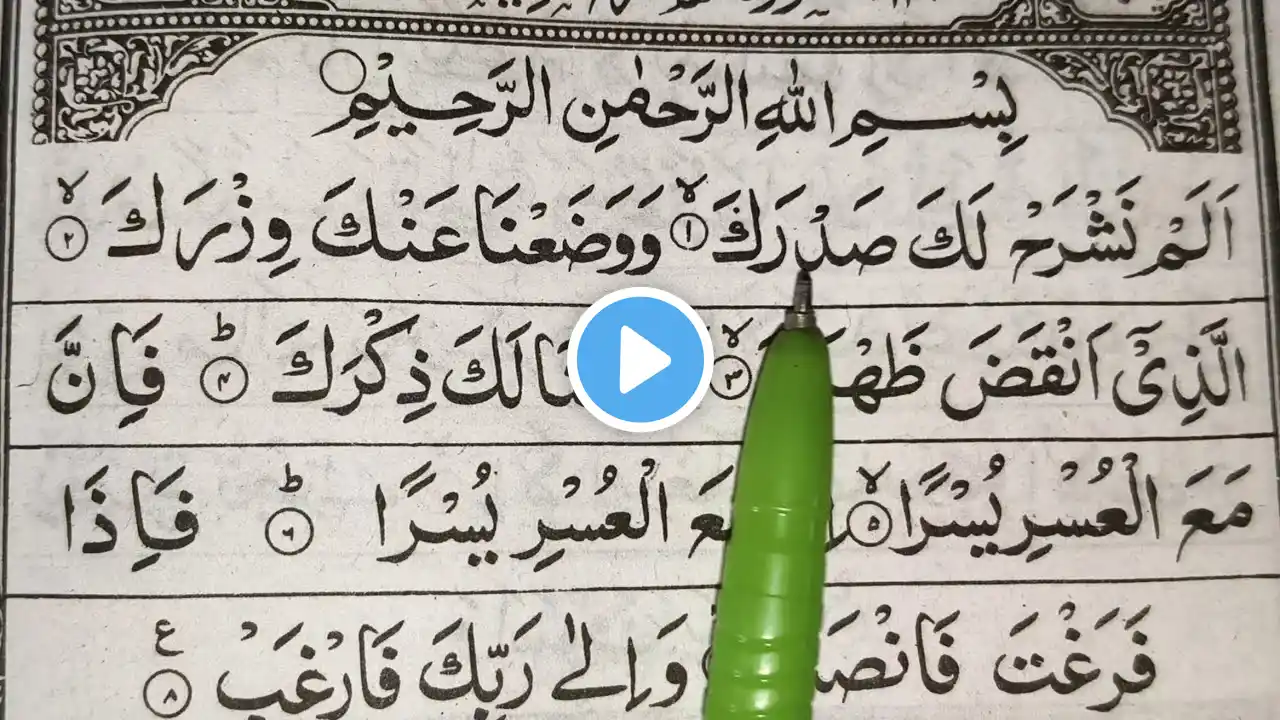 بِسْمِ اللّٰهِ الرَّحْمٰنِ الرَّحِيْمِ
اَلَمْ نَشْرَحْ لَكَ صَدْرَكَ ۙ﴿۱﴾ وَوَضَعْنَا عَنْكَ وِزْرَكَ ۙ﴿۲﴾
الَّذِىْۤ اَنْقَضَ ۙ﴿۳﴾ لَكَ ذِكْرَكَ ؕ﴿۴﴾ فَاِنَّ
مَعَ الْعُسْرِ يُسْرًا ۙ﴿۵﴾ الْعُسْرِ يُسْرًا ؕ﴿۶﴾ فَاِذَا
فَرَغْتَ وَاِلٰى رَبِّكَ فَارْغَبْ ﴿۸﴾ ع